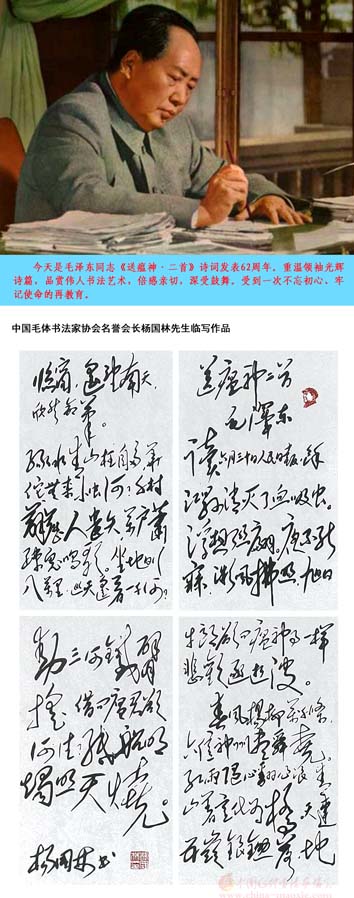 今天是毛泽东同志《送瘟神·二首》诗词发表62周年。重温领袖光辉
诗篇，品赏伟人书法艺术，倍感亲切，深受鼓舞。受到一次不忘初心、牢
记使命的再教育。
中国毛体书法家协会名誉会长杨国林先生临写作品
送瘟神二首
毛泽东
读六月三十日人民日报，余
江县消灭了血吸虫。
浮想联翩，夜不能
寐，微风拂煦，旭日
临窗，遥望南天，
欣然命笔。
绿水青山枉自多，华
佗无奈小虫何！千村
薜荔人遗矢，万户萧
疏鬼唱歌。坐地日行
八万里，巡天遥看一千河。
牛郎欲问瘟神事，一样
悲欢逐逝波。
春风杨柳万千条，
六亿神州尽舜尧。
红雨随心翻作浪，青
山着意化为桥。天连
五岭银锄落，地
动三河铁臂
摇。借问瘟君欲
何往，纸船明
烛照天烧。
杨国林书